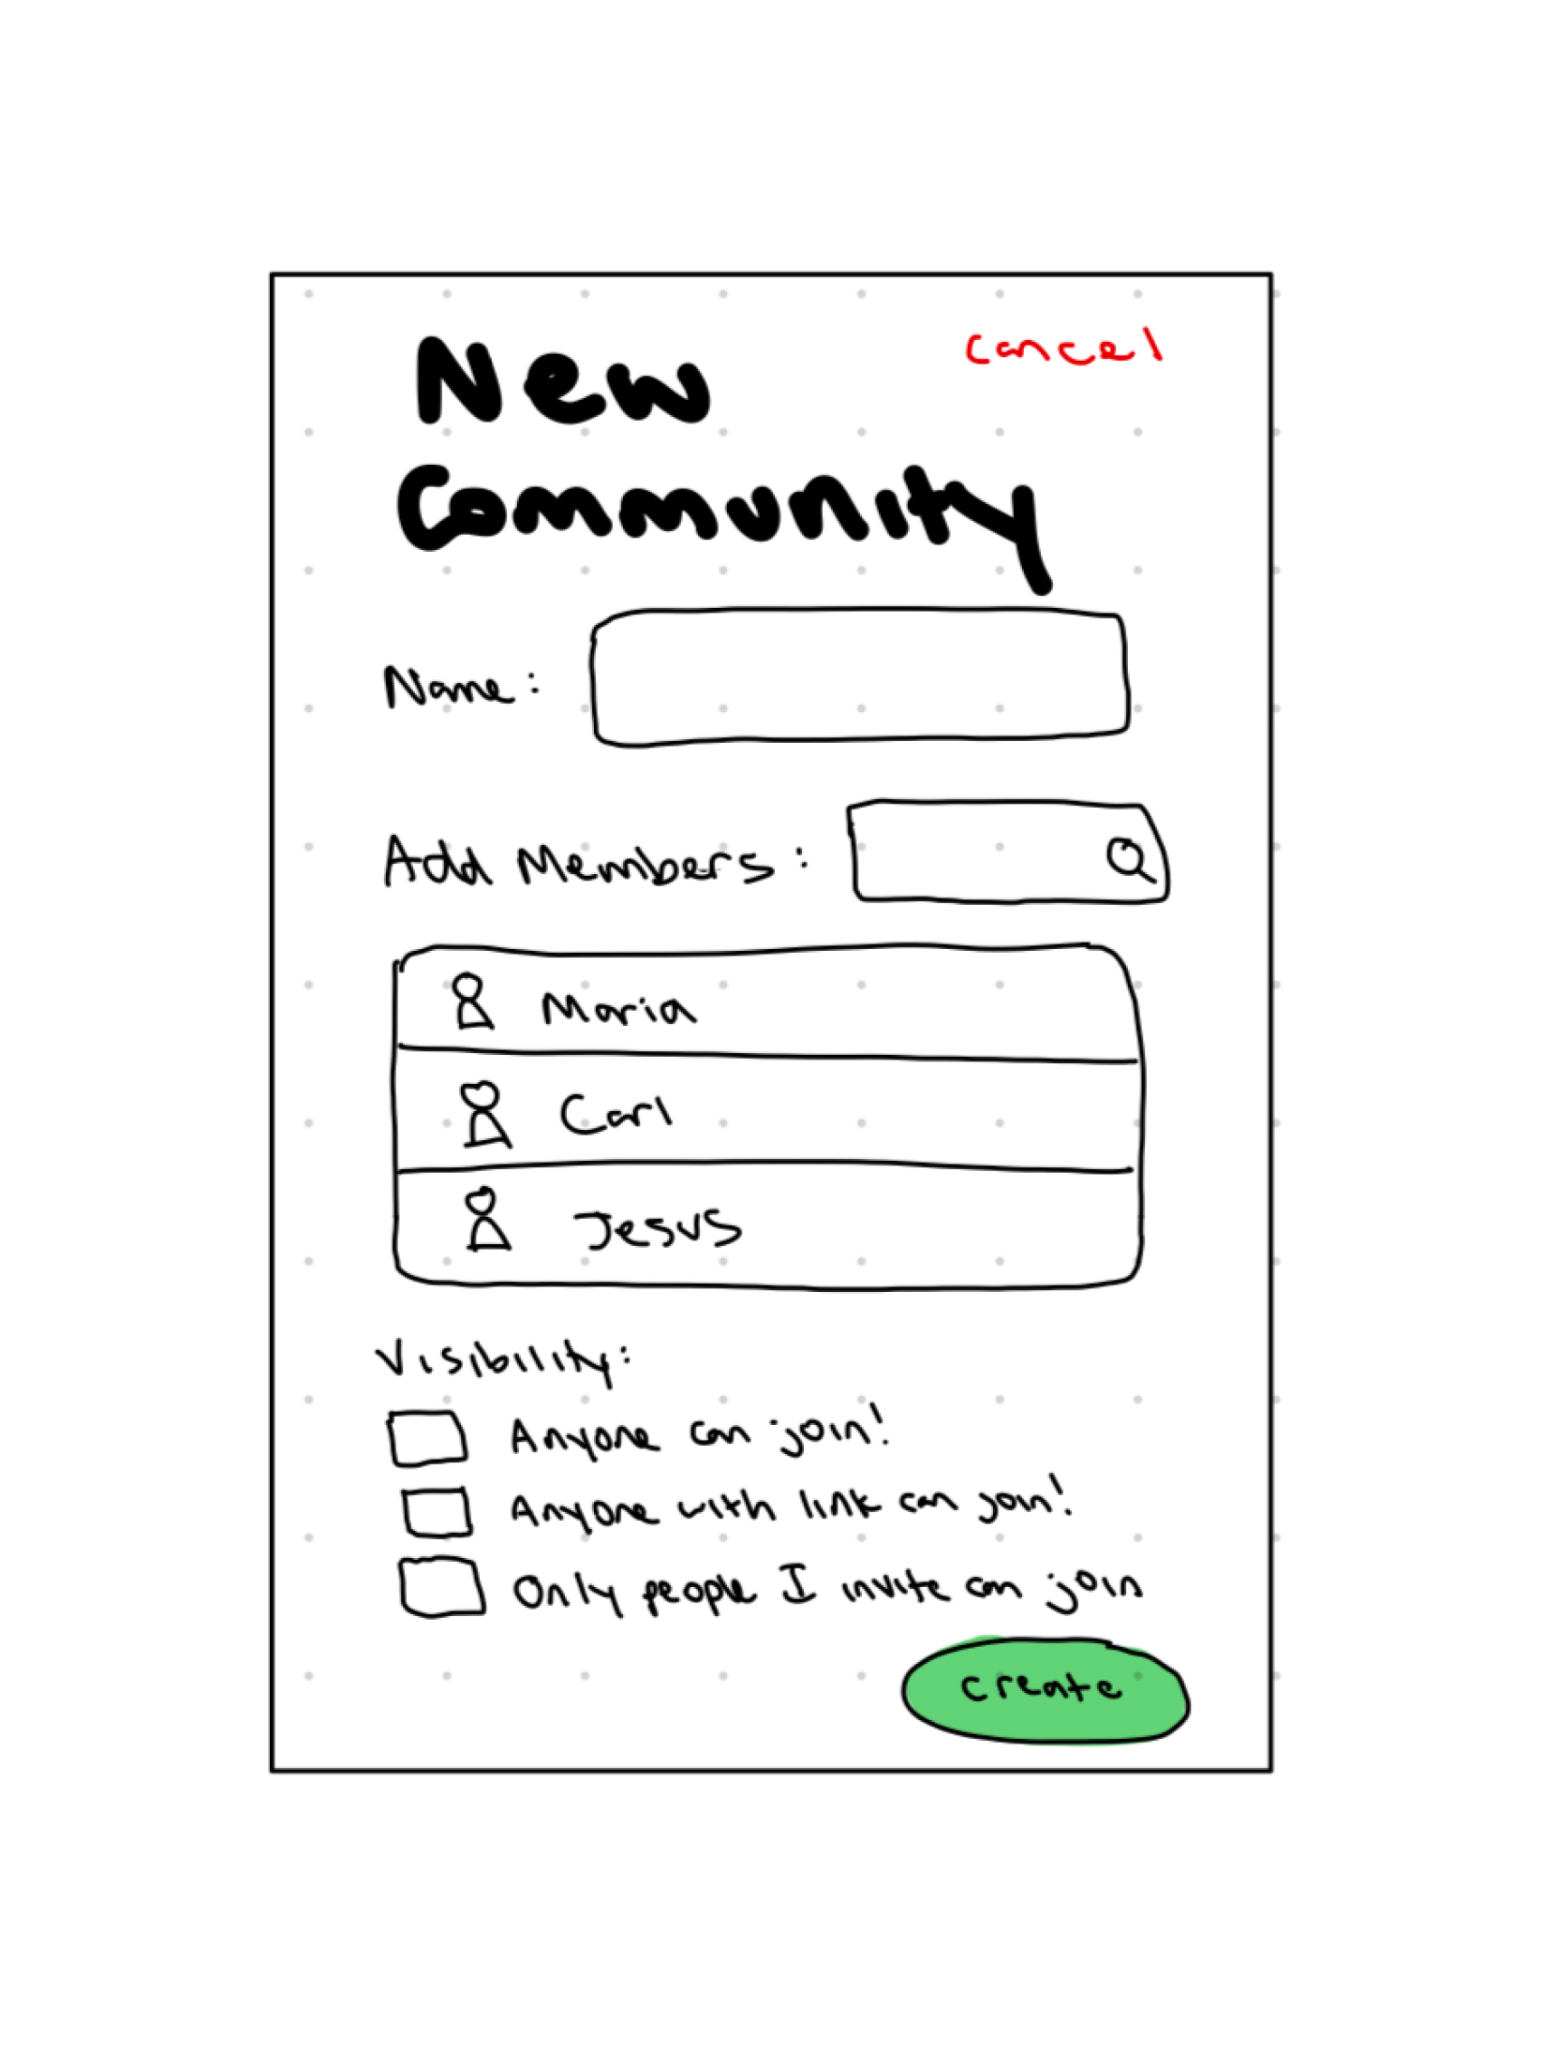 New
cancel
Community
Name:
Add Members:
Maria
Carl
Jesus
Visibility:
Anyone can join!
Anyone with link can join!
Only people I invite can join
create